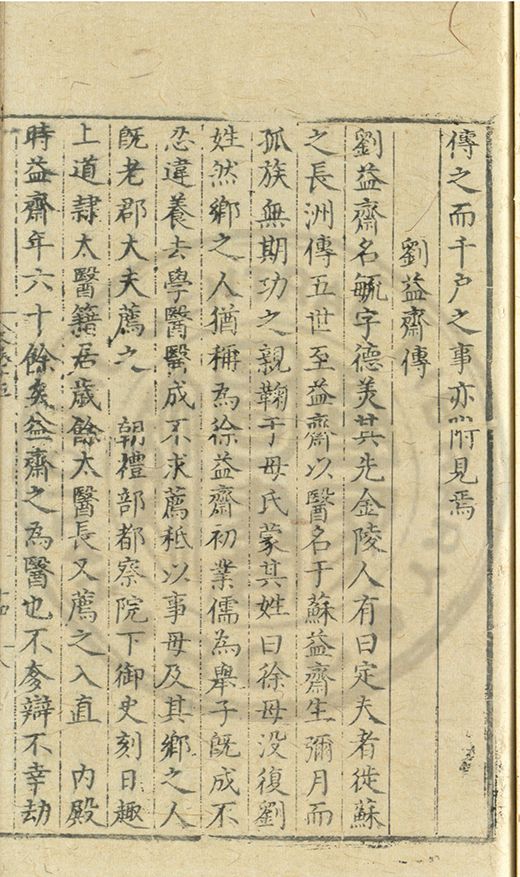 傳之而千戶之事亦附見焉
劉益齋傳
劉益齋名毓字德美其先金陵人有曰定夫者徙蘇
之長洲傳五世至益齋以醫名于蘇益齋生彌月而
孤族無期功之親鞠于母氏蒙其姓曰徐母沒復劉
姓然鄉之人猶稱為徐益齋初業儒為舉子既成不
忍違養去學醫醫成不求薦秪以事母及其鄉之人
既老郡大夫薦之 朝禮部都察院下御史刻日趣
上道隸太醫籍居歲餘太醫長又薦之入直 內殿
時益齋年六十餘矣益齋之為醫也不夸辯不幸劫